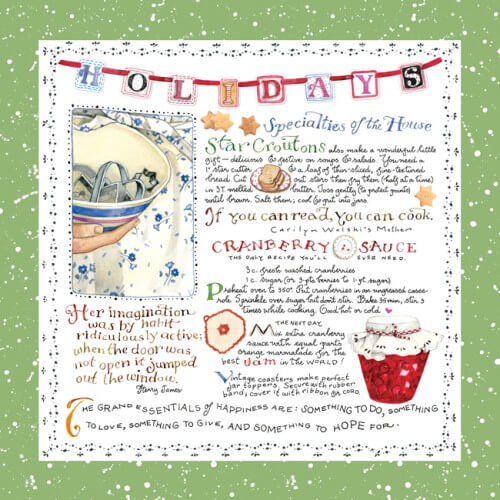 HOLIDAYS
Specialties of the House
Star Croutons also make a wonderful little
gift – delicious & festive on soups & salads. You need a
1" star cutter & a loaf of thin-sliced, fine-textured
bread. Cut out stars then fry them (half at a time)
in 3T. melted butter. Toss gently (to protect points)
until brown. Salt them; cool & put into jars.
If you can read, you can cook.
Carilyn Welski's Mother
CRANBERRY SAUCE
THE ONLY RECIPE YOU'LL EVER NEED.
3 c. fresh washed cranberries
1 c. sugar (or 3-pts berries to 1-pt sugar)
Preheat oven to 350°. Put cranberries in an ungreased casse-
role. Sprinkle over sugar but don't stir. Bake 35 min., stir 3
times while cooking. Good hot or cold
THE NEXT DAY,
Mix extra cranberry
sauce with equal parts
orange marmalade for the
best Jam in the WORLD!
Vintage coasters make perfect
jar toppers. Secure with rubber
band; cover it with ribbon or cord.
Her imagination
was by habit
ridiculously active;
when the door was
not open it jumped
out the window.
Henry James
THE GRAND ESSENTIALS of HAPPINESS ARE: SOMETHING TO DO, SOMETHING
TO LOVE, SOMETHING TO GIVE, AND SOMETHING TO HOPE FOR.